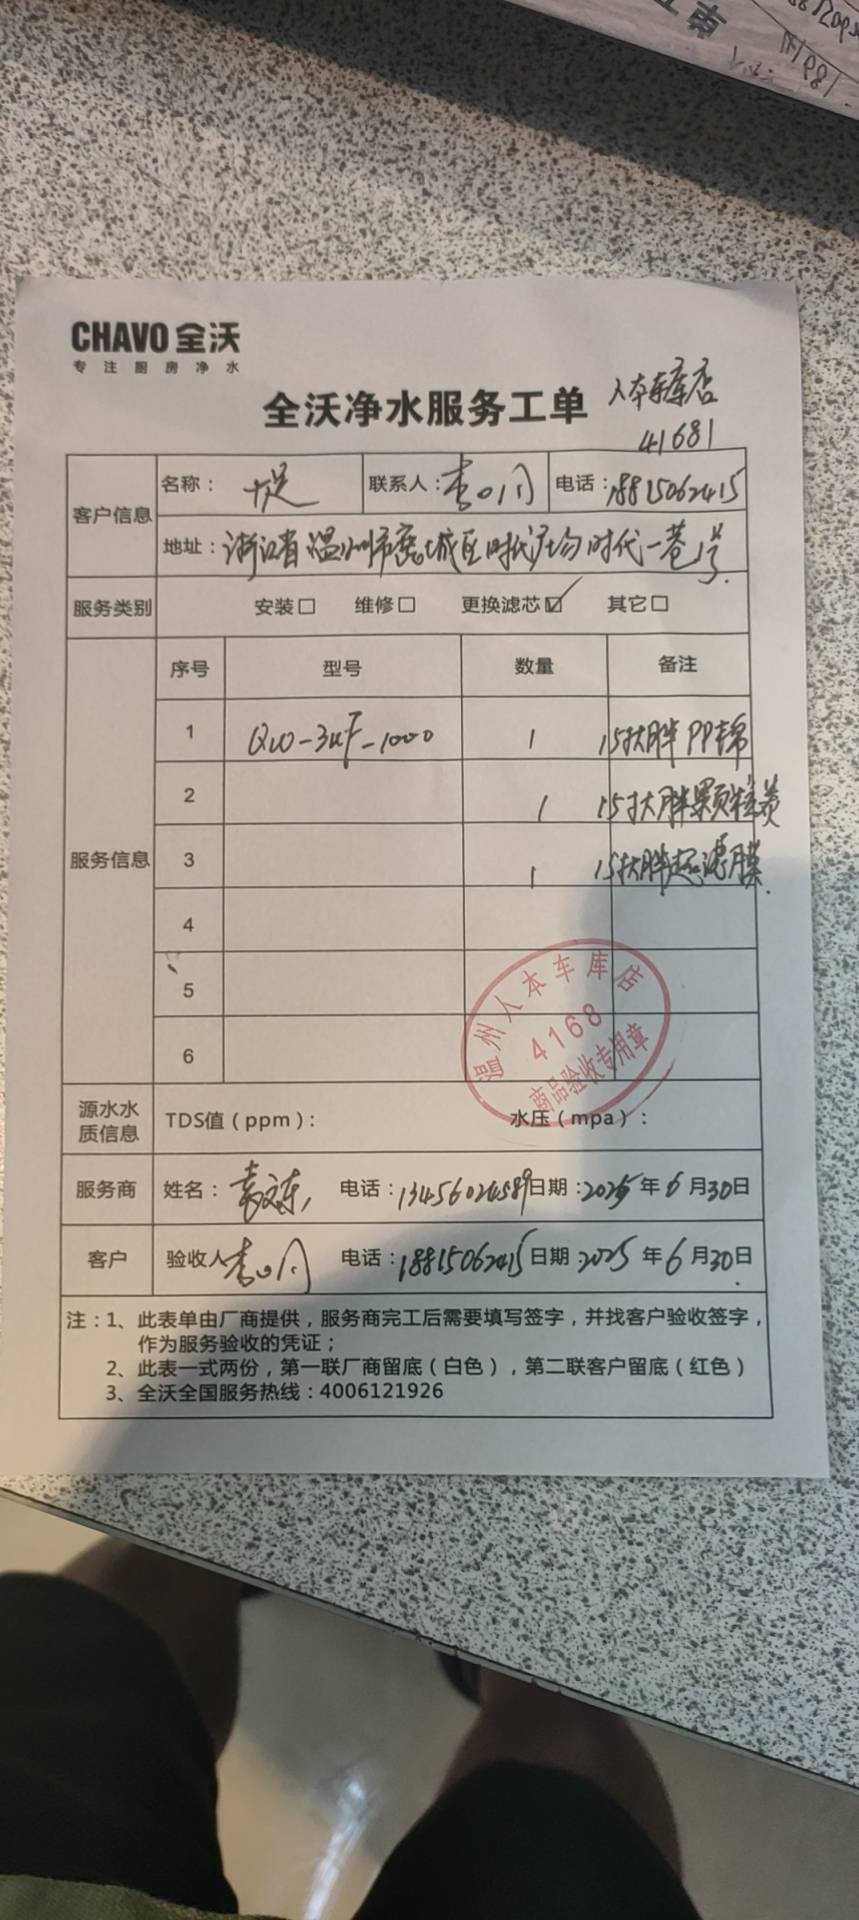 CHAVO 全沃
专注厨房净水
全沃净水服务工单
人本车库店
41681
客户信息
名称：十足 联系人： 电话：18815062415
地址：浙江省温州市鹿城区时代广场时代一巷1号
服务类别 安装□ 维修□ 更换滤芯☑ 其它□
服务信息
序号 型号 数量 备注
1 QW-3UF-1000 1 15寸大胖PP棉
2 1 15寸大胖颗粒炭
3 1 15寸大胖超滤膜
4
5
6
温州人本车库店
4168
商品验收专用章
源水水质信息 TDS值（ppm）： 水压（mpa）：
服务商 姓名：袁文东 电话：13456024589 日期：2025年6月30日
客户 验收人 电话：18815062415 日期：2025年6月30日
注：1、此表单由厂商提供，服务商完工后需要填写签字，并找客户验收签字，
作为服务验收的凭证；
2、此表一式两份，第一联厂商留底（白色），第二联客户留底（红色）
3、全沃全国服务热线：4006121926